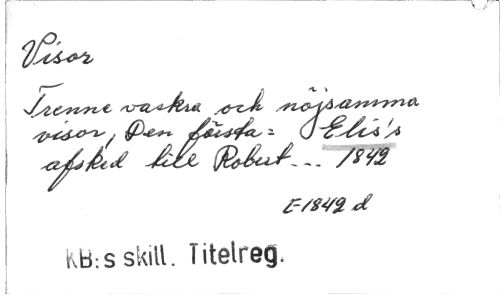 Visor
Trenne vackra och nöjsamma
visor, Den första = Elis's
afsked till Robert... 1842
E 1842 d
KB:s skill. Titelreg.